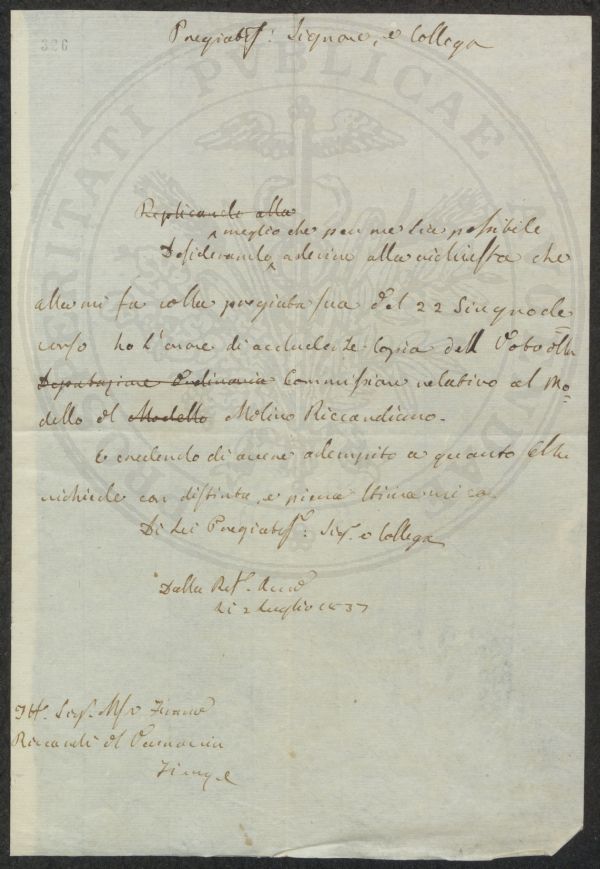 326
Pregiatiss: Signore, e Collega
Replicando alla
meglio che per me sia possibile
Desiderando aderire alla richiesta che
alla mi fa colla pregiata sua del 22 Giugno de
corso ho l'onore di accluderle Copia dell Voto della
Deputazione Ordinaria Commission relativo al Mo=
dello di Modello Molino Riccardiano.
E credendo di avere adempito a quanto Ella
richiede con distinta, e piena stima mi ca
Di Lei Pregiatiss: Sigr. e Collega
Dalla Rl. Accad
Li 2 Luglio 1837
Riccardi del Vernaccia
Firenze
PROSPERITATI PUBLICAE AUGENDAE